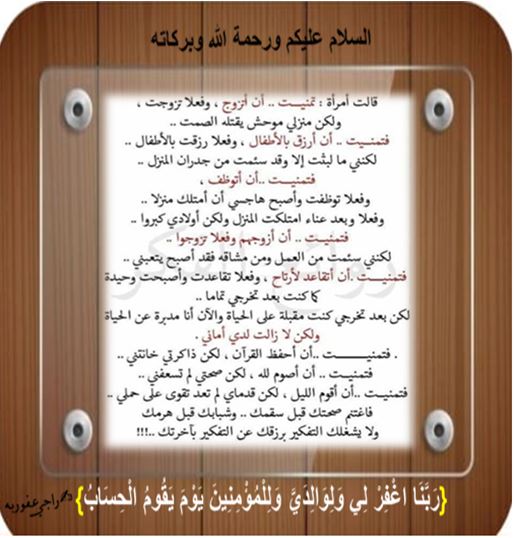 السلام عليكم ورحمة الله وبركاته
قالت أمرأة : تمنيـــت .. أن أتزوج ، وفعلا تزوجت ،
ولكن منزلي موحش يقتله الصمت ..
فتمنـــيت .. أن أرزق بالأطفال ، وفعلا رزقت بالأطفال ..
لكنني ما لبثت إلا وقد سئمت من جدران المنزل ..
فتمنيــــت ..أن أتوظف ،
وفعلا توظفت وأصبح هاجسي أن أمتلك منزلا ..
وفعلا وبعد عناء امتلكت المنزل ولكن أولادي كبروا ..
فتمنيـــت .. أن أزوجهم وفعلا تزوجوا ..
لكنني سئمت من العمل ومن مشاقه فقد أصبح يتعبني ..
فتمنيـــت .أن أتقاعد لأرتاح ، وفعلا تقاعدت وأصبحت وحيدة
كما كنت بعد تخرجي تماما ..
لكن بعد تخرجي كنت مقبلة على الحياة والآن أنا مدبرة عن الحياة
ولكن لا زالت لدي أماني .
. فتمنيــــــت ..أن أحفظ القرآن ، لكن ذاكرتي خانتني ..
فتمنيـــت .. أن أصوم لله ، لكن صحتي لم تسعفني ..
فتمنيـــت ..أن أقوم الليل ، لكن قدماي لم تعد تقوى على حملي ..
فاغتنم صحتك قبل سقمك .. وشبابك قبل هرمك
ولا يشغلك التفكير برزقك عن التفكير بآخرتك ..!!!
روائع الفكر
{رَبَّنَا اغْفِرْ لِي وَلِوَالِدَيَّ وَلِلْمُؤْمِنِينَ يَوْمَ يَقُومُ الْحِسَابُ}